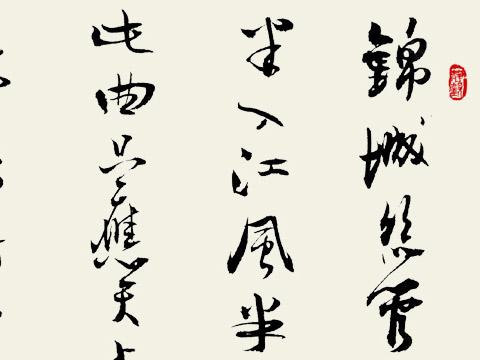 錦城絲管
半入江風半
此曲只應天